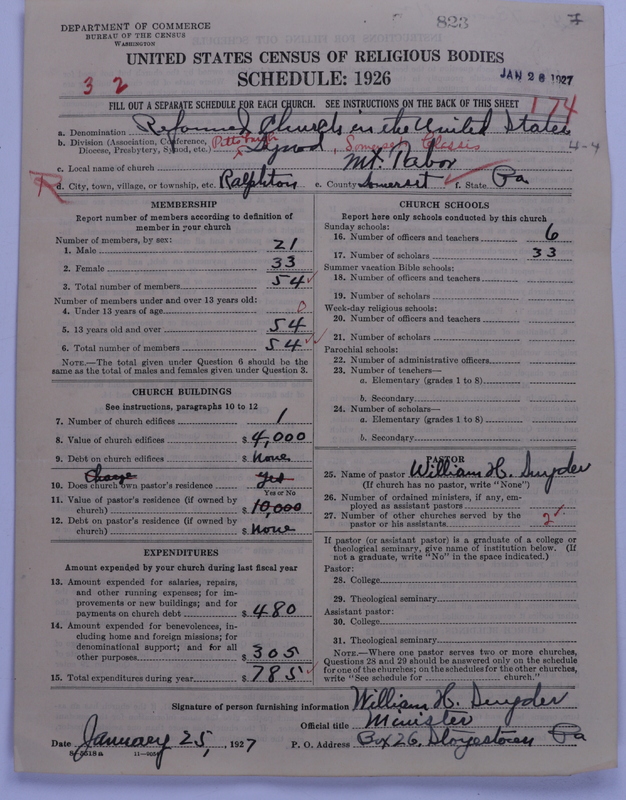 823
DEPARTMENT OF COMMERCE
BUREAU OF THE CENSUS
WASHINGTON
UNITED STATES CENSUS OF RELIGIOUS BODIES
SCHEDULE: 1926
JAN 28 1927
3 2
174
FILL OUT A SEPARATE SCHEDULE FOR EACH CHURCH. SEE INSTRUCTIONS ON THE BACK OF THIS SHEET
a. Denomination Reformed Church in the United States
b. Division (Association, Conference, Diocese, Presbytery, Synod, etc.) Pittsburgh Synod, Somerset Classis
4-4
c. Local name of church Mt. Tabor
R
d. City, town, village, or township, etc. Ralphton e. County Somerset f. State Pa
MEMBERSHIP
Report number of members according to definition of
member in your church
Number of members, by sex:
1. Male 21
2. Female 33
3. Total number of members 54
Number of members under and over 13 years old:
4. Under 13 years of age 0
5. 13 years old and over 54
6. Total number of members 54
NOTE.—The total given under Question 6 should be the
same as the total of males and females given under Question 3.
CHURCH BUILDINGS
See instructions, paragraphs 10 to 12
7. Number of church edifices 1
8. Value of church edifices $ 4,000
9. Debt on church edifices $ None
Charge
10. Does church own pastor's residence Yes
Yes or No
11. Value of pastor's residence (if owned by
church) $ 10,000
12. Debt on pastor's residence (if owned by
church) $ None
EXPENDITURES
Amount expended by your church during last fiscal year
13. Amount expended for salaries, repairs,
and other running expenses; for im-
provements or new buildings; and for
payments on church debt $ 480
14. Amount expended for benevolences, in-
cluding home and foreign missions; for
denominational support; and for all
other purposes $ 305
15. Total expenditures during year $ 785
CHURCH SCHOOLS
Report here only schools conducted by this church
Sunday schools:
16. Number of officers and teachers 6
17. Number of scholars 33
Summer vacation Bible schools:
18. Number of officers and teachers
19. Number of scholars
Week-day religious schools:
20. Number of officers and teachers
21. Number of scholars
Parochial schools:
22. Number of administrative officers
23. Number of teachers—
a. Elementary (grades 1 to 8)
b. Secondary
24. Number of scholars—
a. Elementary (grades 1 to 8)
b. Secondary
PASTOR
25. Name of pastor William H. Snyder
(If church has no pastor, write "None")
26. Number of ordained ministers, if any, em-
ployed as assistant pastors
27. Number of other churches served by the
pastor or his assistants 2
If pastor (or assistant pastor) is a graduate of a college or
theological seminary, give name of institution below. (If
not a graduate, write "No" in the space indicated.)
Pastor:
28. College
29. Theological seminary
Assistant pastor:
30. College
31. Theological seminary
NOTE.—Where one pastor serves two or more churches,
Questions 28 and 29 should be answered only on the schedule
for one of the churches; on the schedules for the other churches,
write "See schedule for church."
Signature of person furnishing information William H. Snyder
Official title Minister
Date January 25, 1927 P. O. Address Box 26, Stoyestown Pa
8-5518a